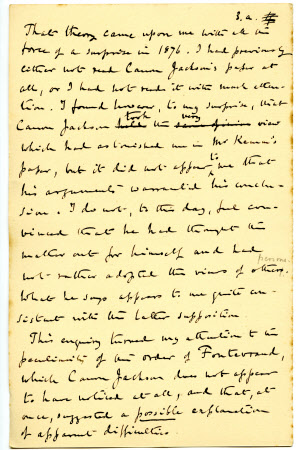 3.a.
That theory came upon me with all the
force of a surprise in 1876. I had previously
either not read Canon Jackson's paper at
all, or I had not read it with much atten-
tion. I found however, to my surprise, that
Canon Jackson took the very view
which had astonished me in Mr
paper, but it did not appear to me that
his arguments warranted his conclu-
sion. I do not, to this day, feel con-
vinced that he had thought the
matter out for himself and had
not rather adopted the views of other persons.
What he says appears to me quite con-
sistent with the latter supposition.
This enquiry turned my attention to the
peculiarity of the order of Fontevraud,
which Canon Jackson does not appear
to have noticed at all, and that, at
once, suggested a possible explanation
of apparent difficulties.